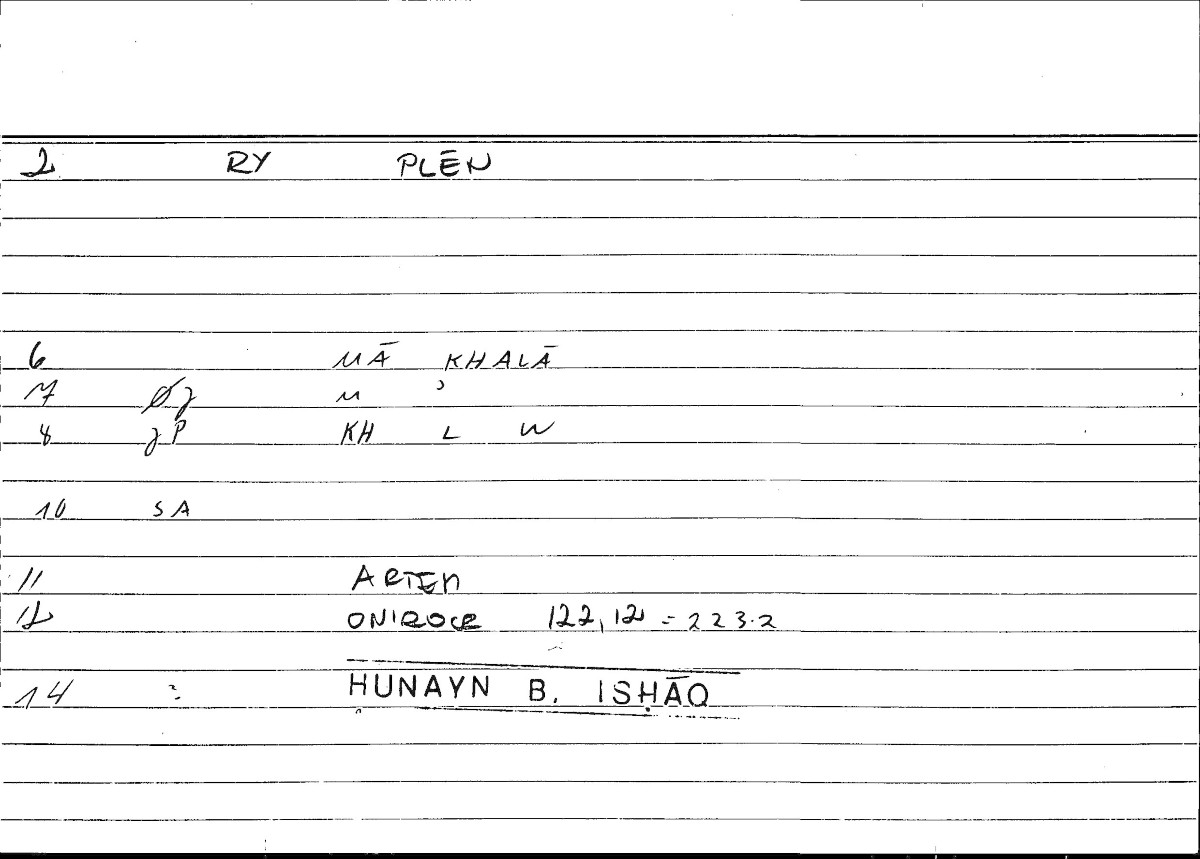 2 RY PLĒN
6 MĀ KHALĀ
7 Øȝ M ʾ
8 ȝP KH L W
10 SA
11 ARTEM
12 ONIROCR 122,12 = 223.2
14 : ḤUNAYN B. ISḤĀQ